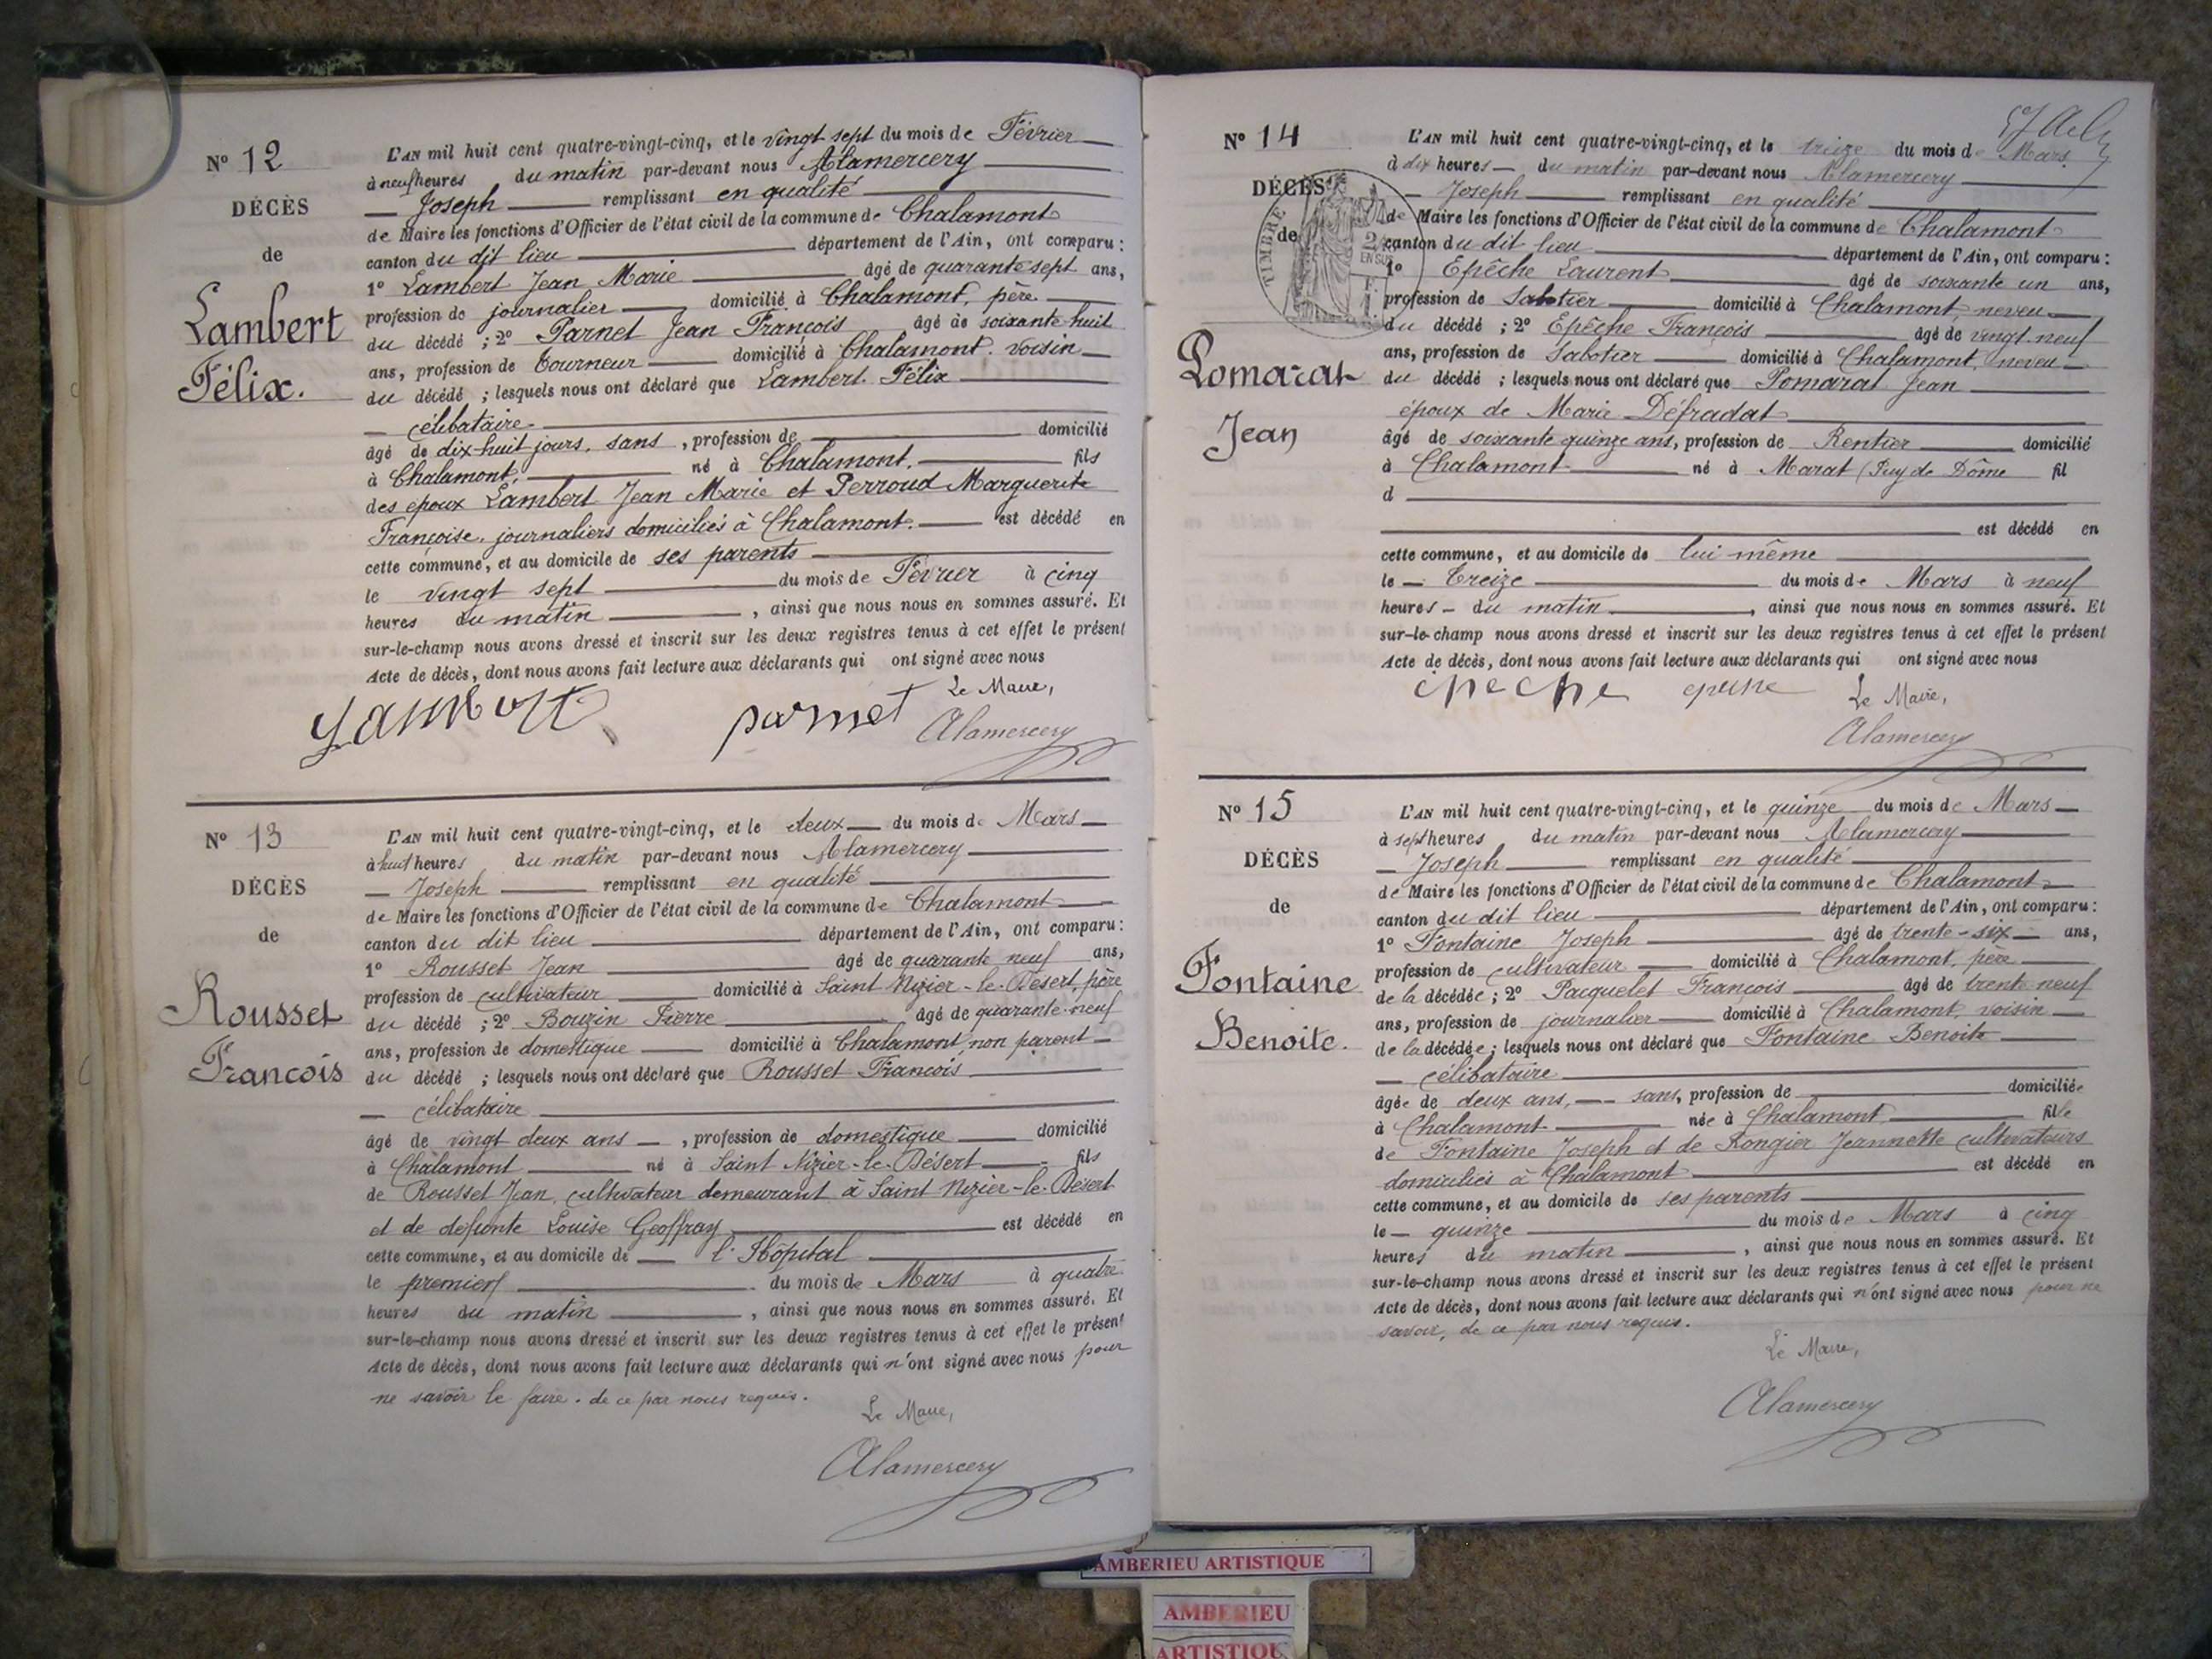 N° 12
DÉCÈS
de
Lambert
Félix.
L'AN mil huit cent quatre-vingt-cinq, et le vingt sept du mois de Février
à neuf heures du matin par-devant nous Alamercery
Joseph remplissant en qualité
de Maire les fonctions d'Officier de l'état civil de la commune de Chalamont
canton du dit lieu département de l'Ain, ont comparu :
1° Lambert Jean Marie âgé de quarante sept ans,
profession de journalier domicilié à Chalamont, père
du décédé ; 2° Parnet Jean François âgé de soixante huit
ans, profession de tourneur domicilié à Chalamont. voisin
du décédé ; lesquels nous ont déclaré que Lambert Félix
célibataire
âgé de dix huit jours, sans , profession de domicilié
à Chalamont, né à Chalamont. fils
des époux Lambert Jean Marie et Perroud Marguerite
Françoise, journaliers domiciliés à Chalamont. est décédé en
cette commune, et au domicile de ses parents
le vingt sept du mois de Février à cinq
heures du matin , ainsi que nous nous en sommes assuré. Et
sur-le-champ nous avons dressé et inscrit sur les deux registres tenus à cet effet le présent
Acte de décès, dont nous avons fait lecture aux déclarants qui ont signé avec nous
Le Maire,
Lambert parnet Alamercery
N° 13
DÉCÈS
de
Rousset
François
L'AN mil huit cent quatre-vingt-cinq, et le deux du mois de Mars
à huit heures du matin par-devant nous Alamercery
Joseph remplissant en qualité
de Maire les fonctions d'Officier de l'état civil de la commune de Chalamont
canton du dit lieu département de l'Ain, ont comparu :
1° Rousset Jean âgé de quarante neuf ans,
profession de cultivateur domicilié à Saint Nizier-le-Désert, père
du décédé ; 2° Bouzin Pierre âgé de quarante-neuf
ans, profession de domestique domicilié à Chalamont, non parent
du décédé ; lesquels nous ont déclaré que Rousset François
célibataire
âgé de vingt deux ans , profession de domestique domicilié
à Chalamont né à Saint Nizier-le-Désert fils
de Rousset Jean, cultivateur demeurant à Saint Nizier-le-Désert
et de defunte Louise Geoffray est décédé en
cette commune, et au domicile de l'Hôpital
le premier du mois de Mars à quatre
heures du matin , ainsi que nous nous en sommes assuré. Et
sur-le-champ nous avons dressé et inscrit sur les deux registres tenus à cet effet le présent
Acte de décès, dont nous avons fait lecture aux déclarants qui n'ont signé avec nous pour
ne savoir le faire. de ce par nous requis.
Le Maire,
Alamercery
N° 14
DÉCÈS
de
Pomarat
Jean
TIMBRE
L'AN mil huit cent quatre-vingt-cinq, et le treize du mois de Mars
à dix heures du matin par-devant nous Alamercery
Joseph remplissant en qualité
de Maire les fonctions d'Officier de l'état civil de la commune de Chalamont
canton du dit lieu département de l'Ain, ont comparu :
1° Epêche Laurent âgé de soixante un ans,
profession de Sabotier domicilié à Chalamont, neveu
du décédé ; 2° Epêche François âgé de vingt-neuf
ans, profession de Sabotier domicilié à Chalamont, neveu
du décédé ; lesquels nous ont déclaré que Pomarat Jean
époux de Marie Défradat
âgé de soixante quinze ans, profession de Rentier domicilié
à Chalamont né à Marat (Puy de Dôme fil
d
est décédé en
cette commune, et au domicile de lui même
le treize du mois de Mars à neuf
heures du matin , ainsi que nous nous en sommes assuré. Et
sur-le-champ nous avons dressé et inscrit sur les deux registres tenus à cet effet le présent
Acte de décès, dont nous avons fait lecture aux déclarants qui ont signé avec nous
epeche epeche Le Maire,
Alamercery
N° 15
DÉCÈS
de
Fontaine
Benoite.
L'AN mil huit cent quatre-vingt-cinq, et le quinze du mois de Mars
à sept heures du matin par-devant nous Alamercery
Joseph remplissant en qualité
de Maire les fonctions d'Officier de l'état civil de la commune de Chalamont
canton du dit lieu département de l'Ain, ont comparu :
1° Fontaine Joseph âgé de trente-six ans,
profession de cultivateur domicilié à Chalamont, père
de la décédée ; 2° Pacquelet François âgé de trente neuf
ans, profession de journalier domicilié à Chalamont, voisin
de la décédée ; lesquels nous ont déclaré que Fontaine Benoite
célibataire
âgée de deux ans, sans, profession de domiciliée
à Chalamont née à Chalamont fille
de Fontaine Joseph et de Rongier Jeannette cultivateurs
domiciliés à Chalamont est décédé en
cette commune, et au domicile de ses parents
le quinze du mois de Mars à cinq
heures du matin , ainsi que nous nous en sommes assuré. Et
sur-le-champ nous avons dressé et inscrit sur les deux registres tenus à cet effet le présent
Acte de décès, dont nous avons fait lecture aux déclarants qui n'ont signé avec nous pour ne
savoir, de ce par nous requis.
Le Maire,
Alamercery
AMBERIEU ARTISTIQUE
AMBERIEU
ARTISTIQU